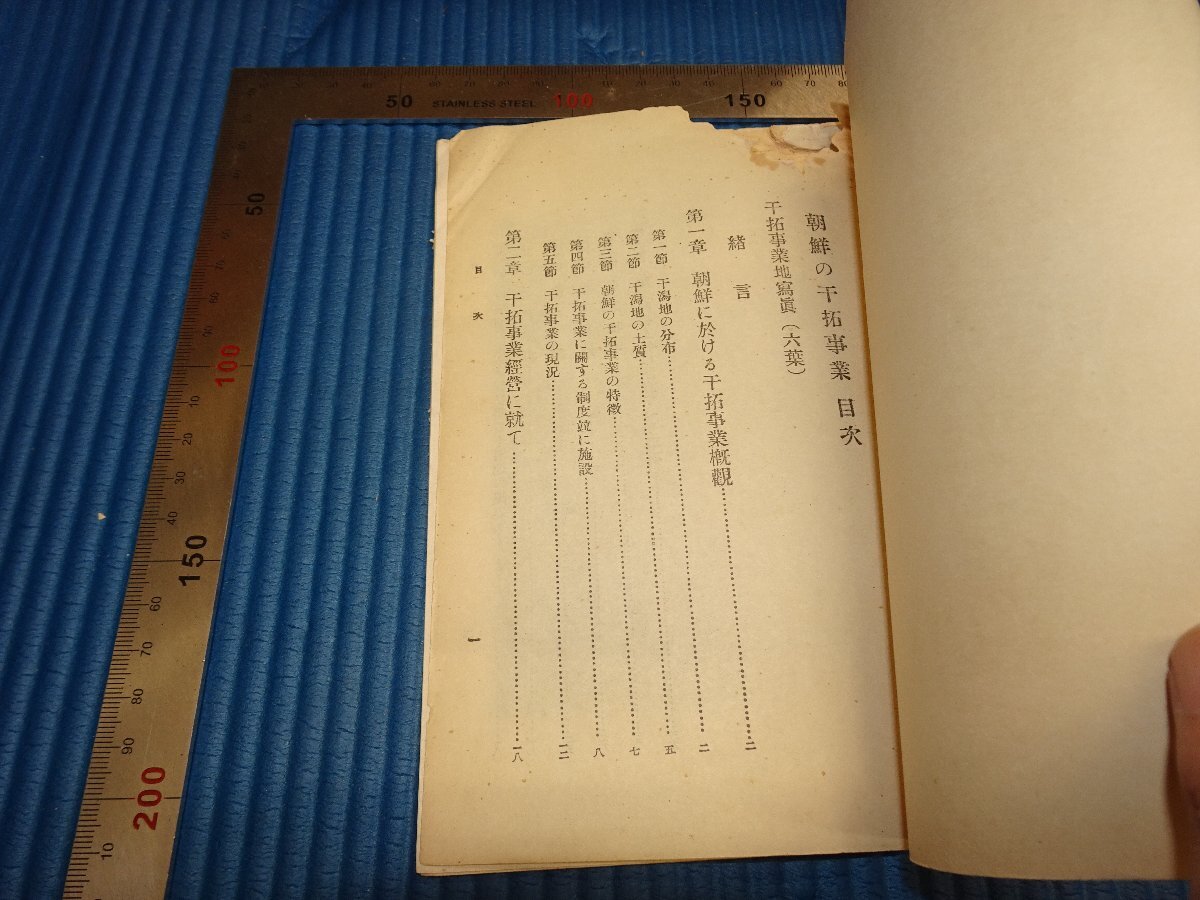 朝鮮の干拓事業 目次
干拓事業地寫眞(六葉)
緒言
第一章 朝鮮に於ける干拓事業概觀……二
第一節 干潟地の分布……二
第二節 干潟地の土質……五
第三節 朝鮮の干拓事業の特徵……七
第四節 干拓事業に關する制度竝に施設……八
第五節 干拓事業の現況……一二
第二章 干拓事業經營に就て……一八
目次
一
STAINLESS STEEL
50
100
150
50
100
150
200